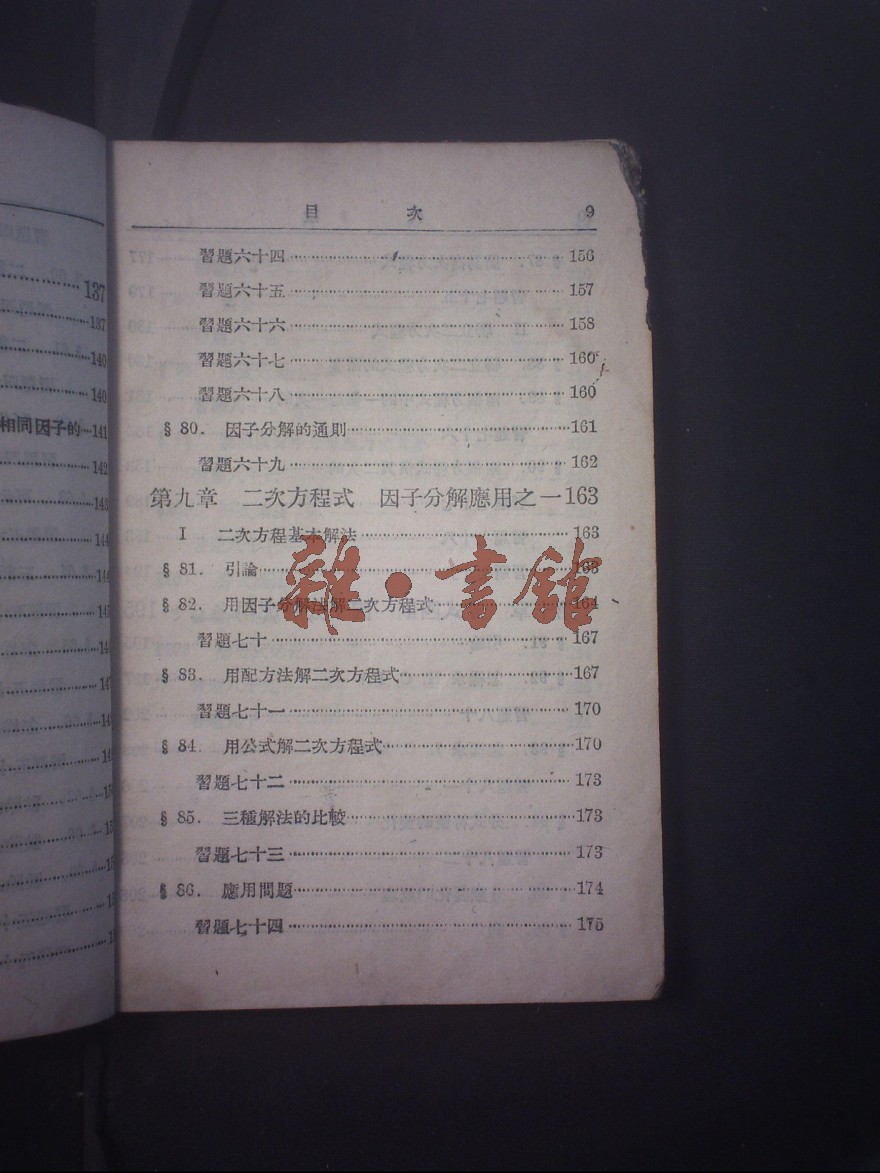 137
137
140
140
相同因子的 141
142
143
144
目 次 9
習題六十四 156
習題六十五 157
習題六十六 158
習題六十七 160
習題六十八 160
§ 80. 因子分解的通則 161
習題六十九 162
第九章 二次方程式 因子分解應用之一 163
I 二次方程基本解法 163
§ 81. 引論 163
§ 82. 用因子分解法解二次方程式 164
習題七十 167
§ 83. 用配方法解二次方程式 167
習題七十一 170
§ 84. 用公式解二次方程式 170
習題七十二 173
§ 85. 三種解法的比較 173
習題七十三 173
§ 86. 應用問題 174
習題七十四 175
雜·書館